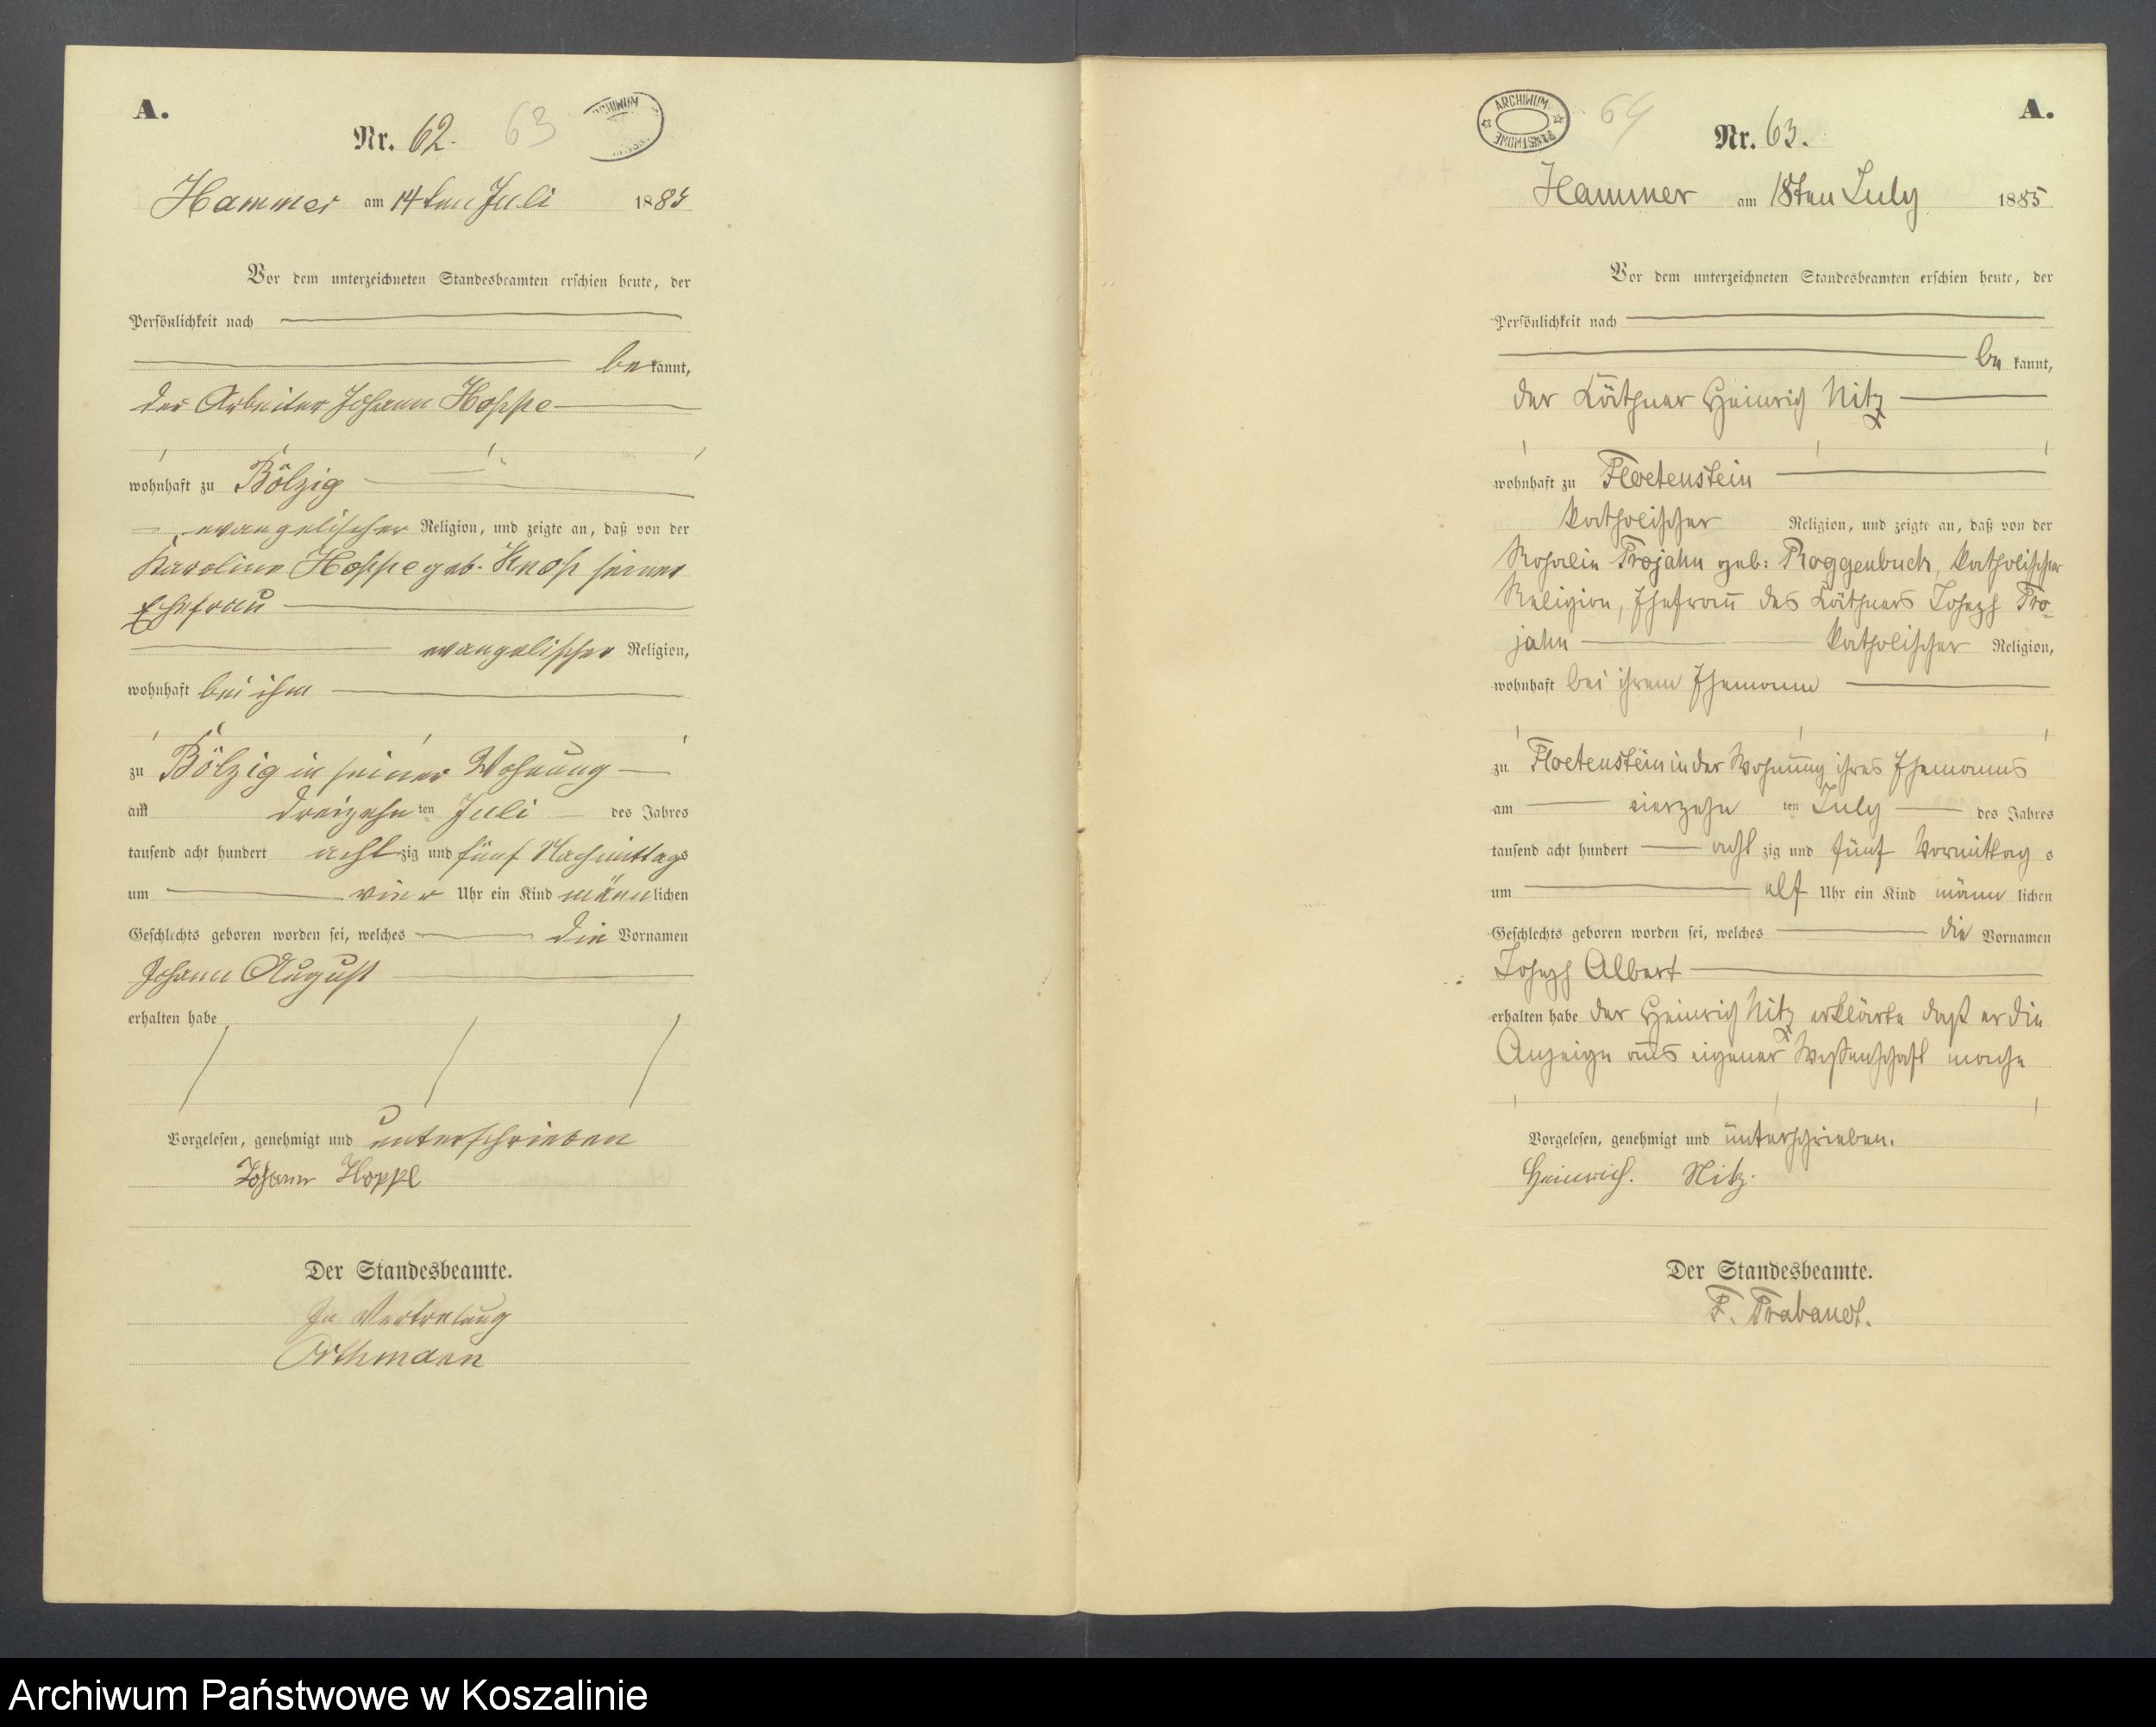 A.
Nr. 62.
63
ARCHIWUM
Hammer am 14ten Juli 1885
Vor dem unterzeichneten Standesbeamten erschien heute, der
Persönlichkeit nach
bekannt,
der Arbeiter Johann Hoppe
wohnhaft zu Bölzig
evangelischer Religion, und zeigte an, daß von der
Karoline Hoppe geb. Knop seiner
Ehefrau
evangelischer Religion,
wohnhaft bei ihm
zu Bölzig in seiner Wohnung
am dreizehn ten Juli des Jahres
tausend acht hundert acht zig und fünf Nachmittags
um vier Uhr ein Kind männlichen
Geschlechts geboren worden sei, welches die Vornamen
Johann August
erhalten habe
Vorgelesen, genehmigt und unterschrieben
Johann Hoppe
Der Standesbeamte.
In Vertretung
Orthmann
ARCHIWUM PAŃSTWOWE
64
A.
Nr. 63.
Hammer am 18ten July 1885
Vor dem unterzeichneten Standesbeamten erschien heute, der
Persönlichkeit nach
be kannt,
der Käthner Heinrich Nitz
wohnhaft zu Floetenstein
katholischer Religion, und zeigte an, daß von der
Rosalie Trojahn geb: Roggenbuch, katholischer
Religion, Ehefrau des Käthners Joseph Tro-
jahn katholischer Religion,
wohnhaft bei ihrem Ehemann
zu Floetenstein in der Wohnung ihres Ehemanns
am vierzehn ten July des Jahres
tausend acht hundert acht zig und fünf Vormittag s
um elf Uhr ein Kind männ lichen
Geschlechts geboren worden sei, welches die Vornamen
Joseph Albert
erhalten habe der Heinrich Nitz erklärte daß er die
Anzeige aus eigener Wissenschaft mache
Vorgelesen, genehmigt und unterschrieben.
Heinrich. Nitz.
Der Standesbeamte.
F. Trabandt.
Archiwum Państwowe w Koszalinie